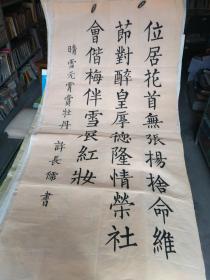 位居花首無張楊捨命維
節對醉皇厚德隆情榮社
會偕梅伴雪長紅妝
晴雪亮賞賞牡丹
許長儒書